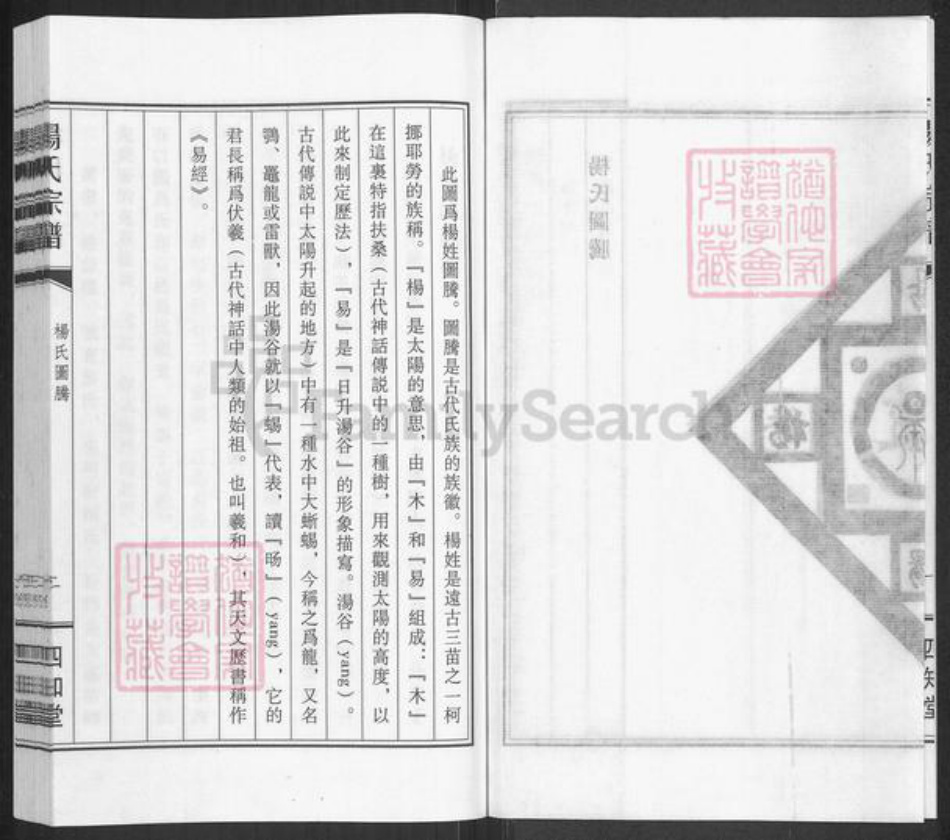 此圖爲楊姓圖騰。圖騰是古代氏族的族徽。楊姓是遠古三苗之一柯
挪耶勞的族稱。『楊』是太陽的意思，由『木』和『易』組成：『木』
在這裏特指扶桑（古代神話傳説中的一種樹，用來觀測太陽的高度，以
此來制定歷法），『易』是『日升湯谷』的形象描寫。湯谷（yang）。
古代傳説中太陽升起的地方）中有一種水中大蜥蜴，今稱之爲龍，又名
鶚、鼉龍或雷獸，因此湯谷就以『蜴』代表，讀『暘』（yang），它的
君長稱爲伏羲（古代神話中人類的始祖。也叫羲和），其天文歷書稱作
《易經》。
楊氏宗譜
楊氏圖騰
四知堂
楊氏圖騰
譜學會
收藏
FamilySearch
四知堂